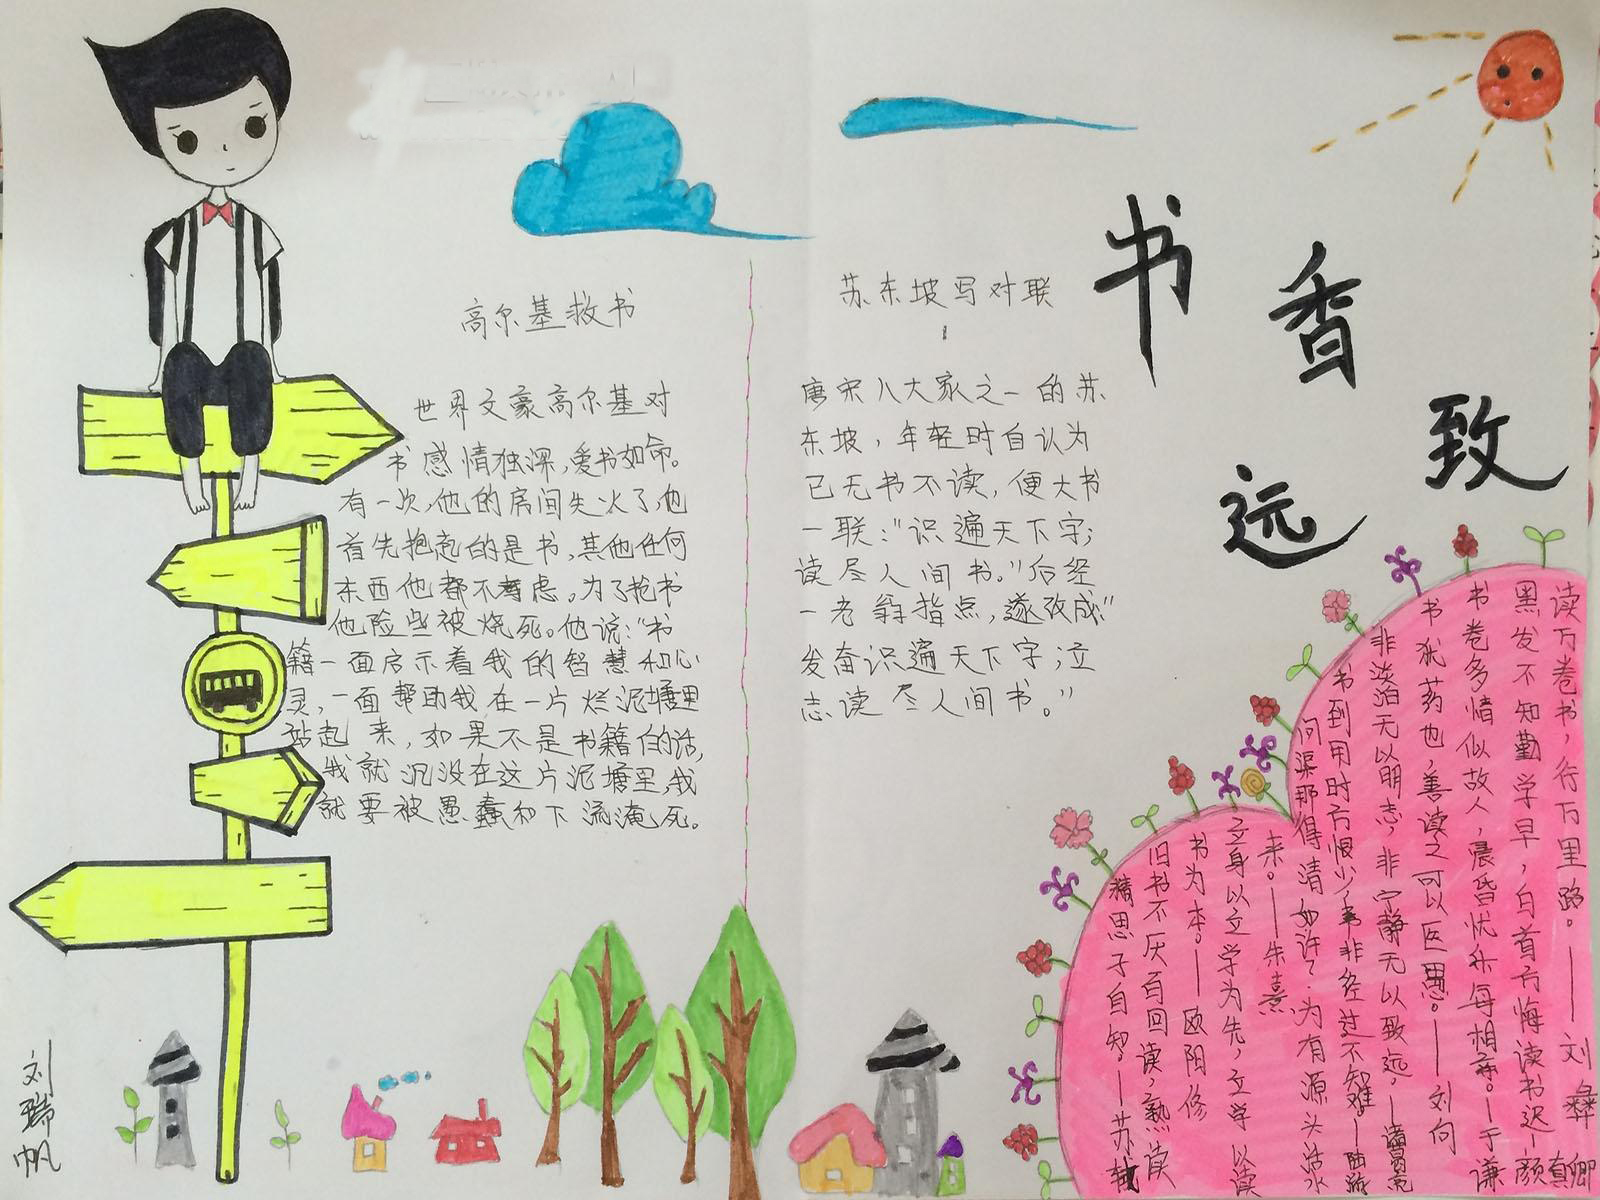 书香致远
高尔基救书
世界文豪高尔基对
书感情独深,爱书如命。
有一次,他的房间失火了,他
首先抱起的是书,其他任何
东西他都不考虑。为了抢书
他险些被烧死。他说:“书
籍一面启示着我的智慧和心
灵,一面帮助我在一片烂泥塘里
站起来,如果不是书籍的话,
我就沉没在这片泥塘里,我
就要被愚蠢和下流淹死。
苏东坡写对联
唐宋八大家之一的苏
东坡,年轻时自认为
已无书不读,便大书
一联:“识遍天下字;
读尽人间书。”后经
一老翁指点,遂改成“
发奋识遍天下字;立
志读尽人间书。”
读万卷书,行万里路。——刘彝
黑发不知勤学早,白首方悔读书迟—颜真卿
书卷多情似故人,晨昏忧乐每相亲。—于谦
书犹药也,善读之可以医愚。——刘向
非淡泊无以明志,非宁静无以致远,—诸葛亮
书到用时方恨少,事非经过不知难。—陆游
问渠那得清如许?为有源头活水
来。——朱熹
立身以立学为先,立学以读
书为本。——欧阳修
旧书不厌百回读,熟读
精思子自知,—苏轼
刘瑞帆